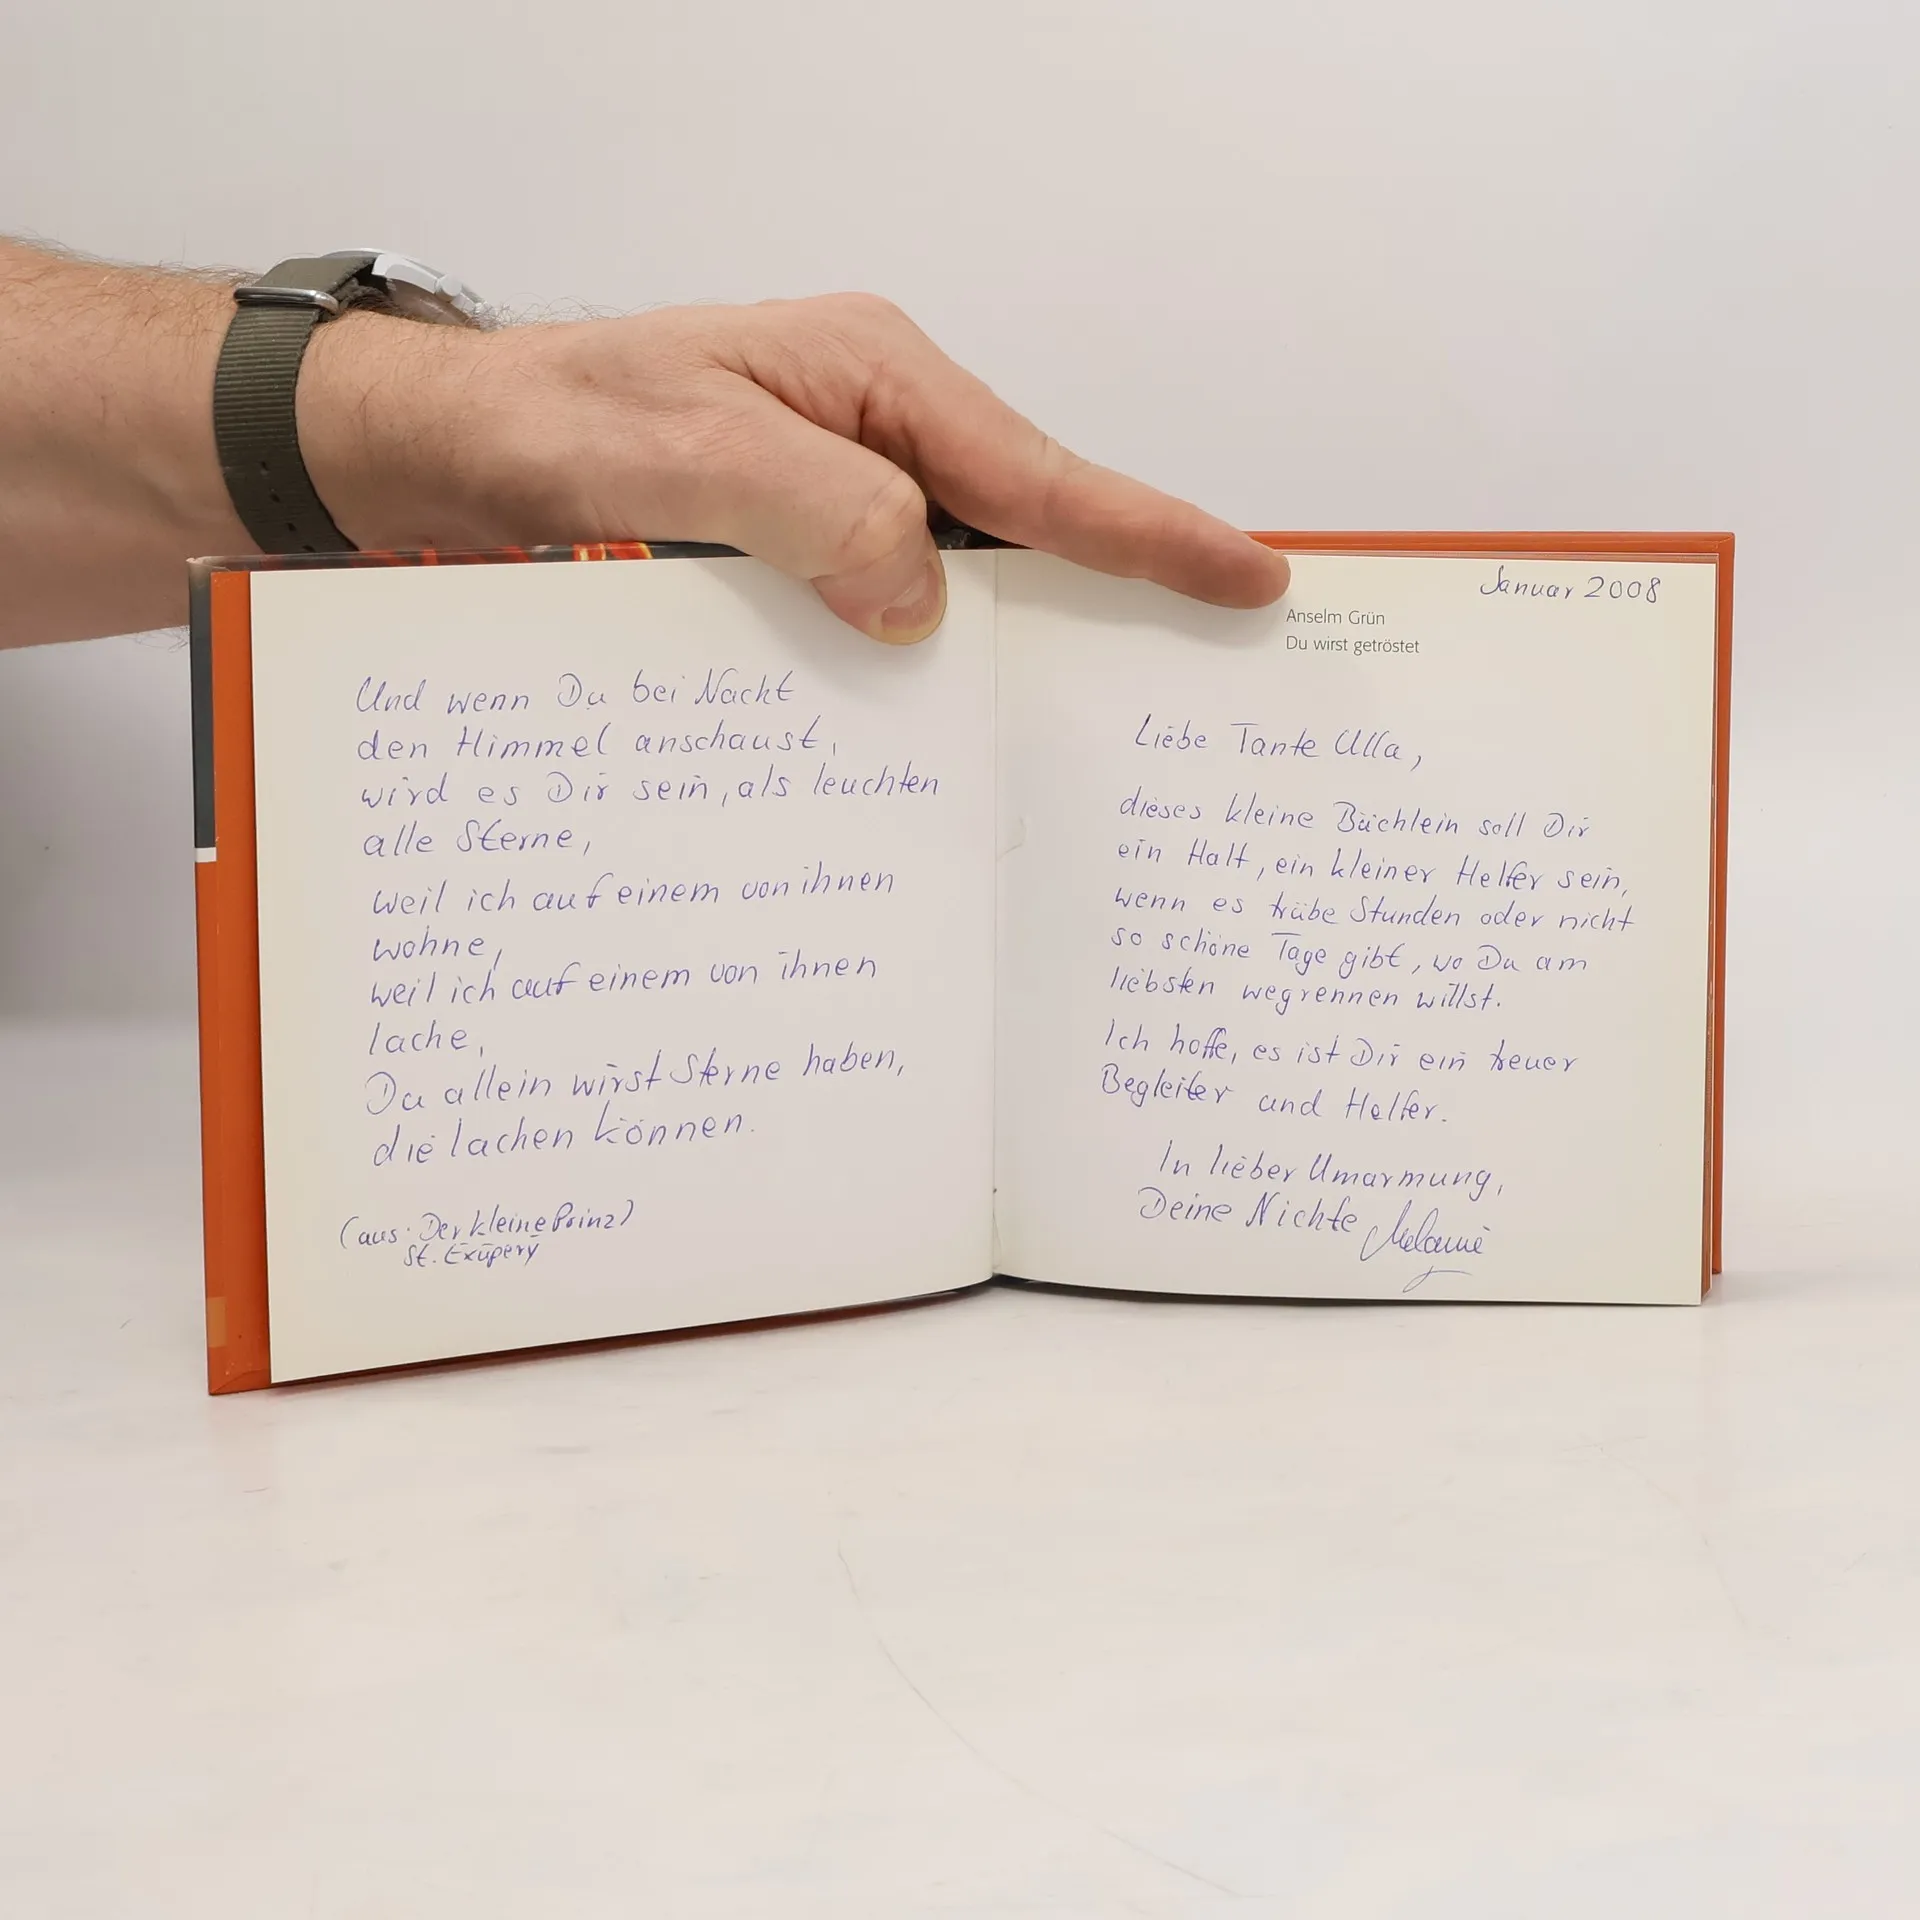 Und wenn Du bei Nacht
den Himmel anschaust,
wird es Dir sein, als leuchten
alle Sterne,
weil ich auf einem von ihnen
wohne,
weil ich auf einem von ihnen
lache,
Du allein wirst Sterne haben,
die lachen können.
(aus: Der kleine Prinz)
St. Exupery
Januar 2008
Anselm Grün
Du wirst getröstet
Liebe Tante Ulla,
dieses kleine Büchlein soll Dir
ein Halt, ein kleiner Helfer sein,
wenn es trübe Stunden oder nicht
so schöne Tage gibt, wo Du am
liebsten wegrennen willst.
Ich hoffe, es ist Dir ein treuer
Begleiter und Helfer.
In lieber Umarmung,
Deine Nichte Melanie